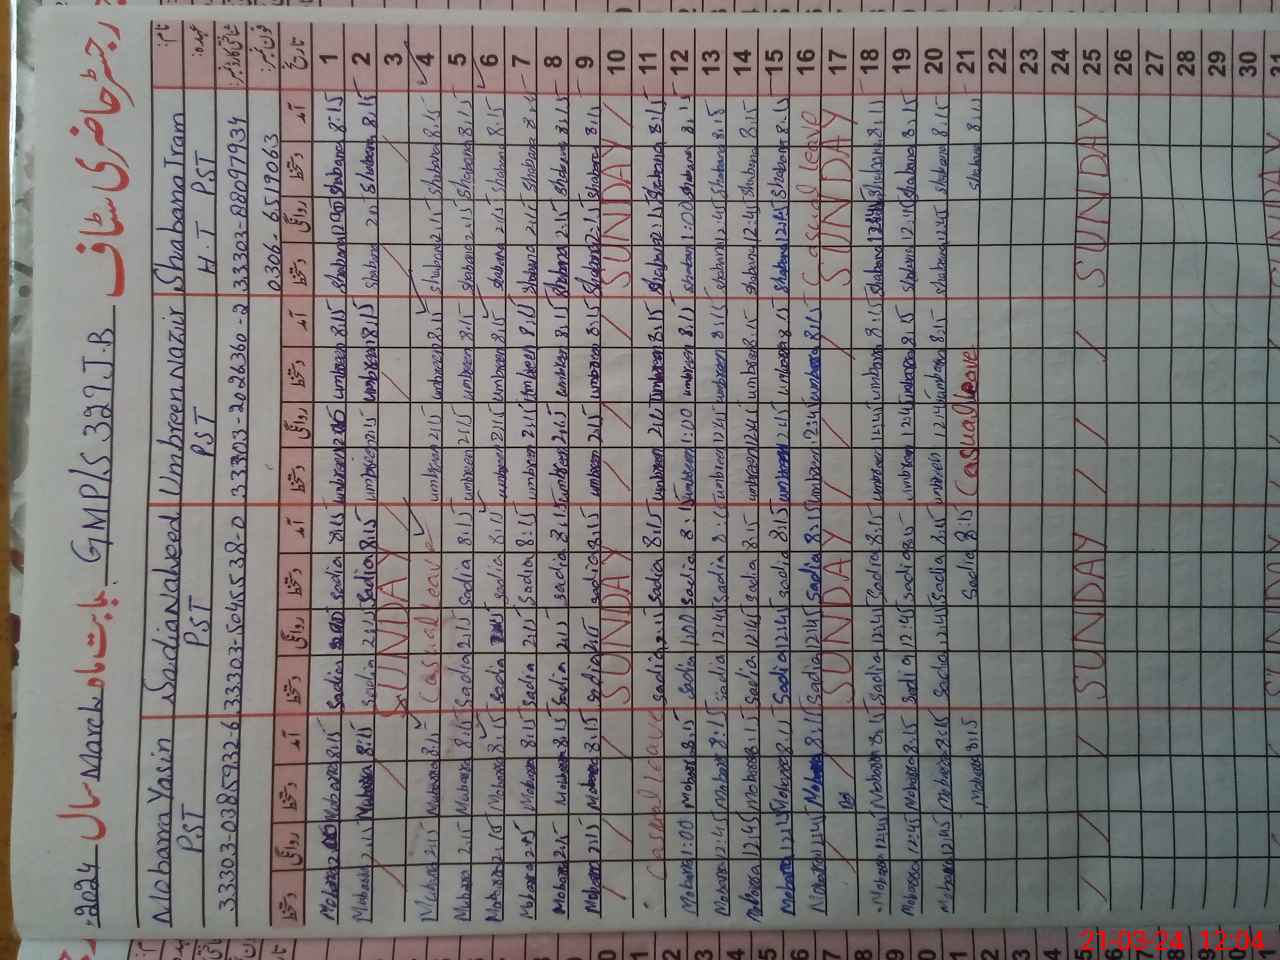 رجسٹر حاضری سٹاف GMP/S 327 J.B بابت ماہ March سال 2024
نام: Shabana Iram Umbreen Nazir Sadia Naheed Mobarra Yasin
عہدہ: H.T PST PST PST PST
شناختی کارڈ نمبر: 33303-8809793-4 33303-2026360-2 33303-5045538-0 33303-0385932-6
فون نمبر: 0306-6519063
تاریخ آمد دستخط روانگی دستخط آمد دستخط روانگی دستخط آمد دستخط روانگی دستخط آمد دستخط روانگی دستخط
1 8:15 Shabana Shabana 8:15 umbreen umbreen 8:15 Sadia Sadia 8:15 Mobarra
2 8:15 Shabana 2:15 Shabana 8:15 umbreen 2:15 umbreen 8:15 Sadia 2:15 Sadia 8:15 Mobarra 2:15 Mobarra
3 SUNDAY
4 8:15 Shabana 2:15 Shabana 8:15 umbreen 2:15 umbreen Casual leave 8:15 Mobarra 2:15 Mobarra
5 8:15 Shabana 2:15 Shabana 8:15 umbreen 2:15 umbreen 8:15 Sadia 2:15 Sadia 8:15 Mobarra 2:15 Mobarra
6 8:15 Shabana 2:15 Shabana 8:15 umbreen 2:15 umbreen 8:15 Sadia 2:15 Sadia 8:15 Mobarra 2:15 Mobarra
7 8:15 Shabana 2:15 Shabana 8:15 umbreen 2:15 umbreen 8:15 Sadia 2:15 Sadia 8:15 Mobarra 2:15 Mobarra
8 8:15 Shabana 2:15 Shabana 8:15 umbreen 2:15 umbreen 8:15 Sadia 2:15 Sadia 8:15 Mobarra 2:15 Mobarra
9 8:15 Shabana 2:15 Shabana 8:15 umbreen 2:15 umbreen 8:15 Sadia 2:15 Sadia 8:15 Mobarra 2:15 Mobarra
10 SUNDAY SUNDAY
11 8:15 Shabana 2:15 Shabana 8:15 umbreen 2:15 umbreen 8:15 Sadia 2:15 Sadia Casual leave
12 8:15 Shabana 1:00 Shabana 8:15 umbreen 1:00 umbreen 8:15 Sadia 1:00 Sadia 8:15 Mobarra 1:00 Mobarra
13 8:15 Shabana 12:45 Shabana 8:15 umbreen 12:45 umbreen 8:15 Sadia 12:45 Sadia 8:15 Mobarra 12:45 Mobarra
14 8:15 Shabana 12:45 Shabana 8:15 umbreen 12:45 umbreen 8:15 Sadia 12:45 Sadia 8:15 Mobarra 12:45 Mobarra
15 8:15 Shabana 12:45 Shabana 8:15 umbreen 12:45 umbreen 8:15 Sadia 12:45 Sadia 8:15 Mobarra 12:15 Mobarra
16 Casual leave 8:15 umbreen 12:45 umbreen 8:15 Sadia 12:45 Sadia 8:15 Mobarra 12:45 Mobarra
17 SUNDAY SUNDAY
18 8:15 Shabana 12:45 Shabana 8:15 umbreen 12:45 umbreen 8:15 Sadia 12:45 Sadia 8:15 Mobarra 12:45 Mobarra
19 8:15 Shabana 12:45 Shabana 8:15 umbreen 12:45 umbreen 8:15 Sadia 12:45 Sadia 8:15 Mobarra 12:45 Mobarra
20 8:15 Shabana 12:45 Shabana 8:15 umbreen 12:45 umbreen 8:15 Sadia 12:45 Sadia 8:15 Mobarra 12:45 Mobarra
21 8:15 Shabana Casual leave 8:15 Sadia 8:15 Mobarra
22
23
24
25 SUNDAY SUNDAY
26
27
28
29
30
31 SUNDAY SUNDAY
21-03-24 12:04